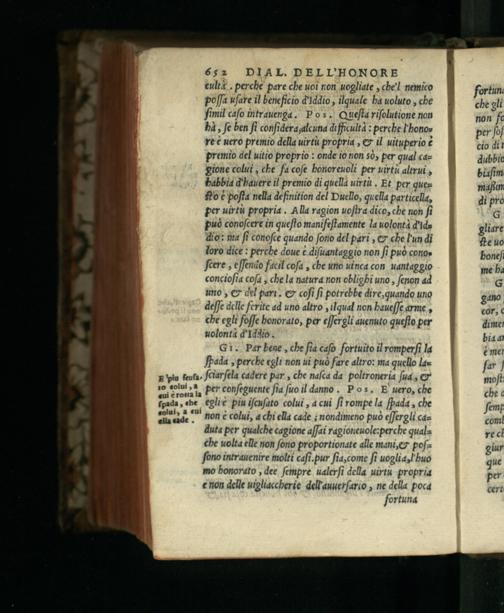 652 DIAL. DELL'HONORE
cultà. perche pare che uoi non uogliate, che'l nemico
possa usare il beneficio d'Iddio, ilquale ha uoluto, che
simil caso intrauenga. Pos. Questa risolutione non
hà, se ben si considera, alcuna difficultà: perche l'hono-
re è uero premio della uirtù propria, & il uituperio è
premio del uitio proprio: onde io non sò, per qual ca-
gione colui, che fa cose honoreuoli per uirtù altrui,
habbia d'hauere il premio di quella uirtù. Et per que-
sto è posta nella definition del Duello, quella particella,
per uirtù propria. Alla ragion uostra dico, che non si
può conoscere in questo manifestamente la uolontà d'Id-
dio: ma si conosce quando sono del pari, & che l'un di
loro dice: perche doue è disuantaggio non si può cono-
scere, essendo facil cosa, che uno uinca con uantaggio
conciosia cosa, che la natura non oblighi uno, se non ad
uno, & del pari. & così si potrebbe dire, quando uno
desse delle ferite ad uno altro, ilqual non hauesse arme,
che egli fosse honorato, per essergli auenuto questo per
uolontà d'Iddio.
Gi. Par bene, che sia caso fortuito il rompersi la
spada, perche egli non ui può fare altro: ma quello la-
sciarsela cadere par, che nasca da poltroneria sua, &
per conseguente sia suo il danno. Pos. E uero, che
egli è piu iscusato colui, a cui si rompe la spada, che
non è colui, a chi ella cade; nondimeno può essergli ca-
duta per qualche cagione assai ragioneuole: perche qual-
che uolta elle non sono proportionate alle mani, & pos-
sono intrauenire molti casi. pur sia, come si uoglia, l'huo
mo honorato, dee sempre ualersi della uirtù propria
e non delle uigliaccherie dell'auuersario, ne della poca
fortuna
E piu scusa-
to colui, a
cui è rotta la
spada, che
colui, a cui
ella cade.
fortuna
che gli
non fo
cio di
dubbi
biasim
di pro
G
gliare
ste uo
honest
me ha
G
gano
cor, c
dimen
bia ar
e men
far
most
che
sempr
comb
re ch
giur
que
per
cert